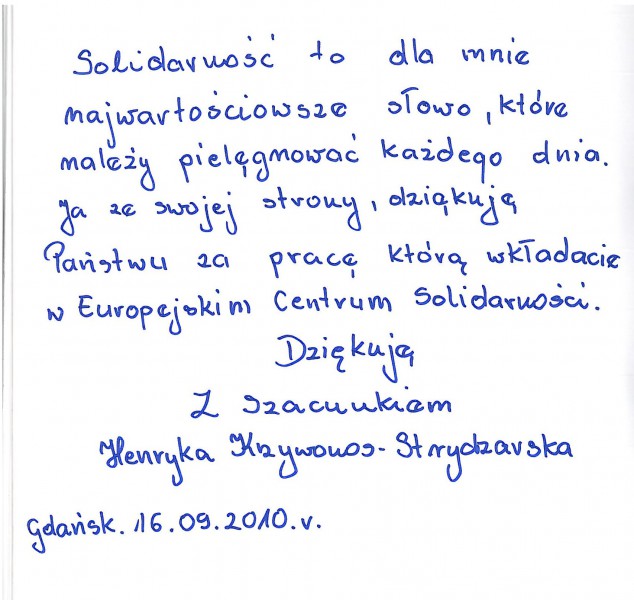 Solidarność to dla mnie
najwartościowsze słowo, które
należy pielęgnować każdego dnia.
Ja ze swojej strony, dziękuję
Państwu za pracę którą wkładacie
w Europejskim Centrum Solidarności.
Dziękuję
Z szacunkiem
Henryka Krzywonos-Strycharska
Gdańsk. 16.09.2010.r.